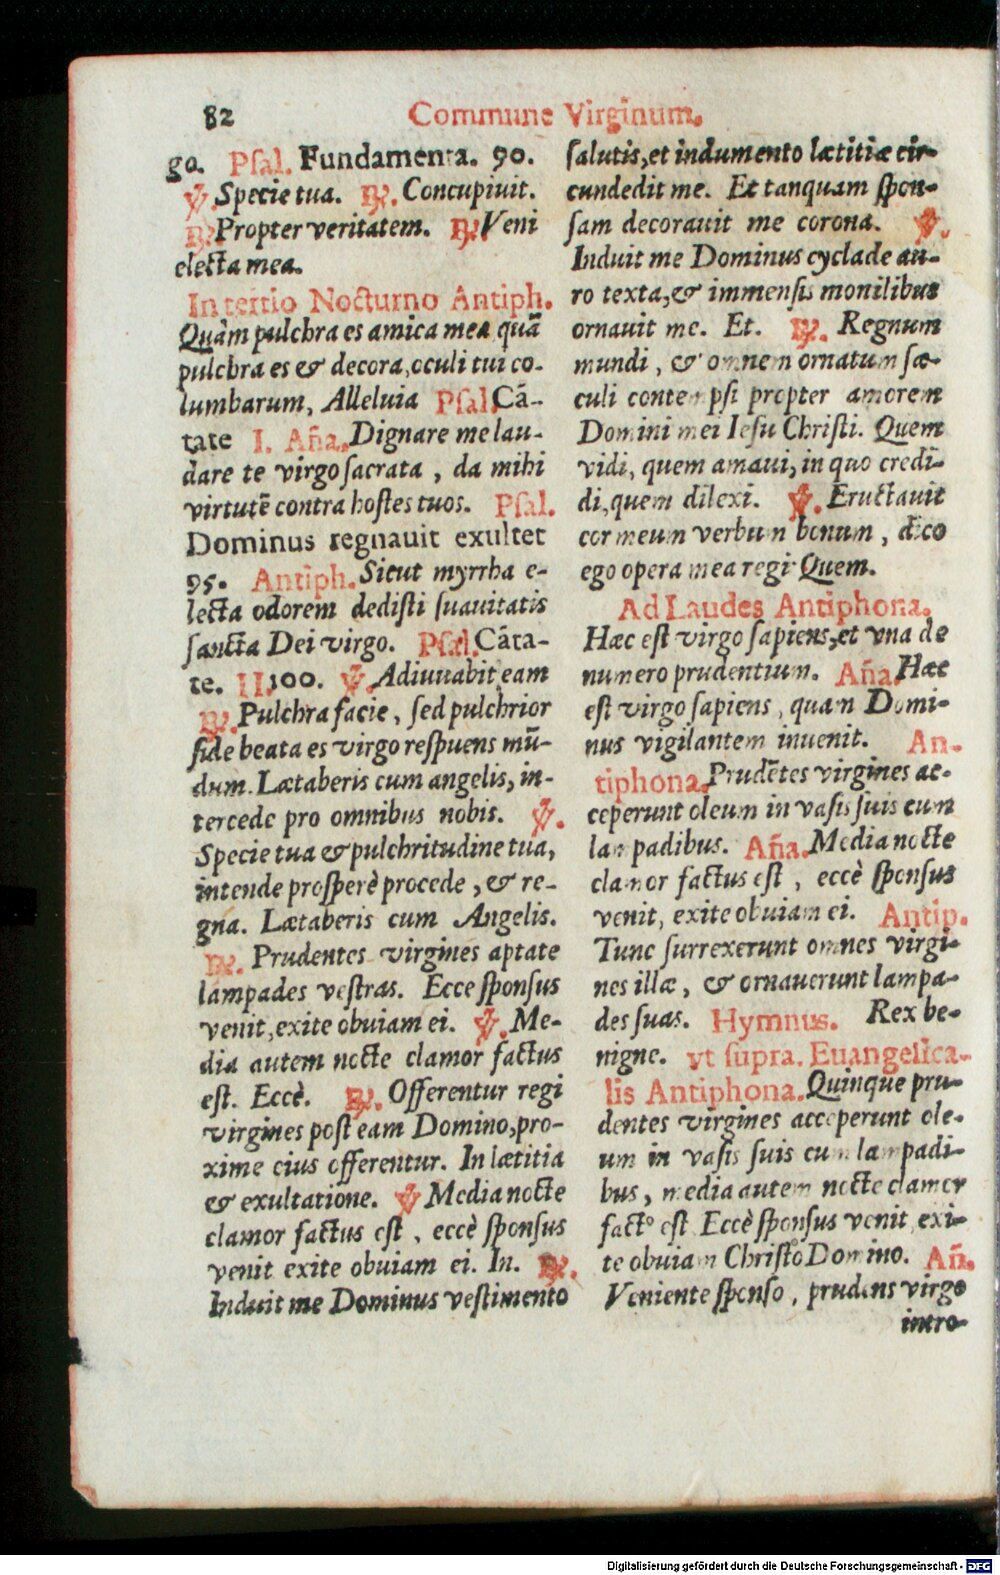 82
Commune Virginum.
go. Psal. Fundamenta. 90.
℣. Specie tua. ℟. Concupiuit.
℟. Propter veritatem. ℟. Veni
electa mea.
In tertio Nocturno Antiph.
Quàm pulchra es amica mea quã
pulchra es & decora, oculi tui co-
lumbarum, Alleluia Psal. Cã-
tate I. Aña. Dignare me lau-
dare te virgo sacrata, da mihi
virtutẽ contra hostes tuos. Psal.
Dominus regnauit exultet
95. Antiph. Sicut myrrha e-
lecta odorem dedisti suauitatis
sancta Dei virgo. Psal. Cãta-
te. II. 100. ℣. Adiuuabit eam
℟. Pulchra facie, sed pulchrior
fide beata es virgo respuens mũ-
dum. Lætaberis cum angelis, in-
tercede pro omnibus nobis. ℣.
Specie tua & pulchritudine tua,
intende prosperè procede, & re-
gna. Lætaberis cum Angelis.
℟. Prudentes virgines aptate
lampades vestras. Ecce sponsus
venit, exite obuiam ei. ℣. Me-
dia autem nocte clamor factus
est. Eccè. ℟. Offerentur regi
virgines post eam Domino, pro-
xime eius offerentur. In lætitia
& exultatione. ℣ Media nocte
clamor factus est, eccè sponsus
venit exite obuiam ei. In. ℟.
Induit me Dominus vestimento
salutis, et indumento lætitiæ cir-
cundedit me. Et tanquam spon-
sam decorauit me corona. ℣.
Induit me Dominus cyclade au-
ro texta, & immensis monilibus
ornauit me. Et. ℟. Regnum
mundi, & omnem ornatum sæ-
culi contempsi propter amorem
Domini mei Iesu Christi. Quem
vidi, quem amaui, in quo credi-
di, quem dilexi. ℣. Eructauit
cor meum verbum bonum, dico
ego opera mea regi Quem.
Ad Laudes Antiphona.
Hæc est virgo sapiens, et vna de
numero prudentium. Aña. Hæc
est virgo sapiens, quam Domi-
nus vigilantem inuenit. An-
tiphona. Prudẽtes virgines ac-
ceperunt oleum in vasis suis cum
lampadibus. Aña. Media nocte
clamor factus est, eccè sponsus
venit, exite obuiam ei. Antip.
Tunc surrexerunt omnes virgi-
nes illæ, & ornauerunt lampa-
des suas. Hymnus. Rex be-
nigne. vt supra. Euangelica-
lis Antiphona. Quinque pru-
dentes virgines acceperunt ole-
um in vasis suis cum lampadi-
bus, media autem nocte clamor
fact⁹ est Eccè sponsus venit exi-
te obuiam Christo Domino. Añ.
Veniente sponso, prudens virgo
intro-
Digitalisierung gefördert durch die Deutsche Forschungsgemeinschaft - DFG